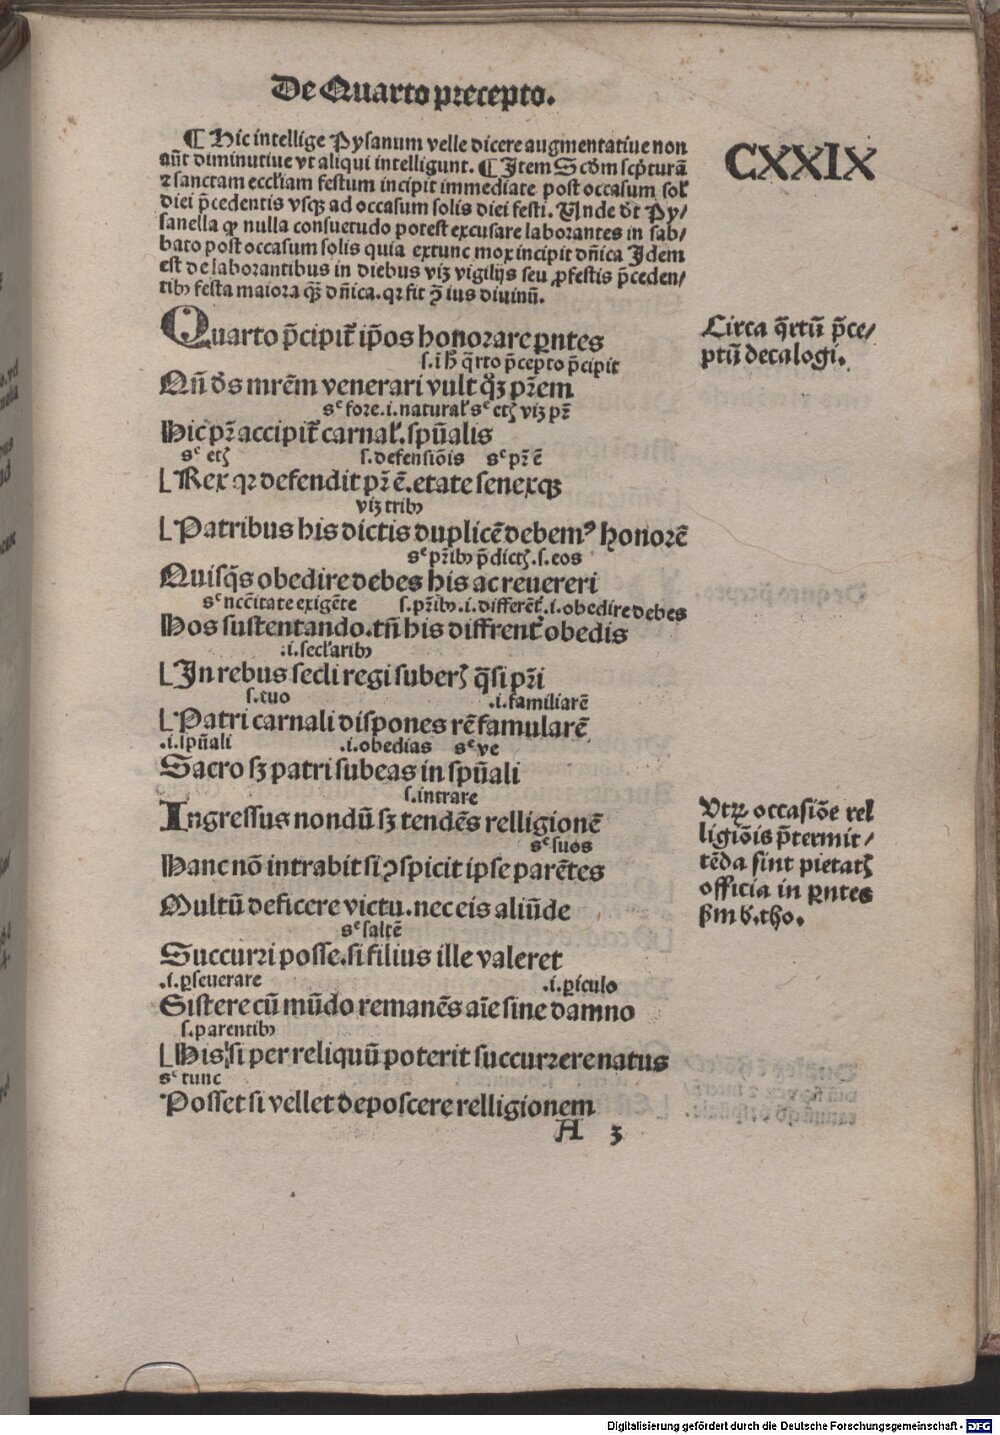 De Quarto precepto.
¶ Hic intellige Pysanum velle dicere augmentatiue non
aūt diminutiue vt aliqui intelligunt. ¶ Item Scḋm scp̄turā
⁊ sanctam eccłiam festum incipit immediate post occasum soł
diei p̄cedentis vsqꝫ ad occasum solis diei festi. Unde dt̄ Py/
sanella ꝙ nulla consuetudo potest excusare laborantes in sab/
bato post occasum solis quia extunc mox incipit dn̄ica Idem
est de laborantibus in diebus vizꝫ vigilijs seu ꝓfestis p̄ceden/
tibꝰ festa maiora qꝫ̄ dn̄ica. qꝛ fit ꝯ̄ ius diuinū.
CXXIX
Quarto p̄cipit᷑ ip̄os honorare ꝑntes
Circa q̄rtū p̄ce/
ptū decalogi.
s. ī h̄ q̄rto p̄cepto p̄cipit
Nū ds̄ mrēm venerari vult qꝫ̄ pr̄em
sᶜ fore .i. naturał sᶜ etꝭ viꝫ pr̄
Hic pr̄ accipit᷑ carnał. spūalis
sᶜ etꝭ s. defensiōis sᶜ pr̄ ē
⌊Rex qꝛ defendit pr̄ ē. etate senexqꝫ
viꝫ tribꝰ
⌊Patribus his dictis duplicē debemꝰ honorē
sᶜ pr̄ibꝰ p̄dictꝭ .s. eos
Quisq̄s obedire debes his ac reuereri
sᶜ necc̄itate exigēte s. pr̄ibꝰ .i. differēt᷑ .i. obedire debes
Hos sustentando. tn̄ his diffrent᷑ obedis
.i. secłaribꝰ
⌊In rebus secli regi suberꝭ q̄si pr̄i
s. tuo .i. familiarē
⌊Patri carnali dispones rē famularē
.i. spūali .i. obedias sᶜ ve
Sacro sꝫ patri subeas in spūali
s. intrare
Ingressus nondū sꝫ tendēs relligionē
Vtrꝝ occasiōe rel
ligiōis p̄termit/
tēda sint pietatꝭ
officia in ꝑntes
ẜm b. tho.
sᶜ suos
Hanc nō intrabit si ꝯspicit ipse parētes
Multū deficere victu. nec eis aliūde
sᶜ saltē
Succurri posse. si filius ille valeret
.i. ꝑseuerare .i. ꝑiculo
Sistere cū mūdo remanēs aīe sine damno
s. parentibꝰ
⌊His si per reliquū poterit succurrere natus
sᶜ tunc
Posset si vellet deposcere relligionem
A 3
Digitalisierung gefördert durch die Deutsche Forschungsgemeinschaft - DFG